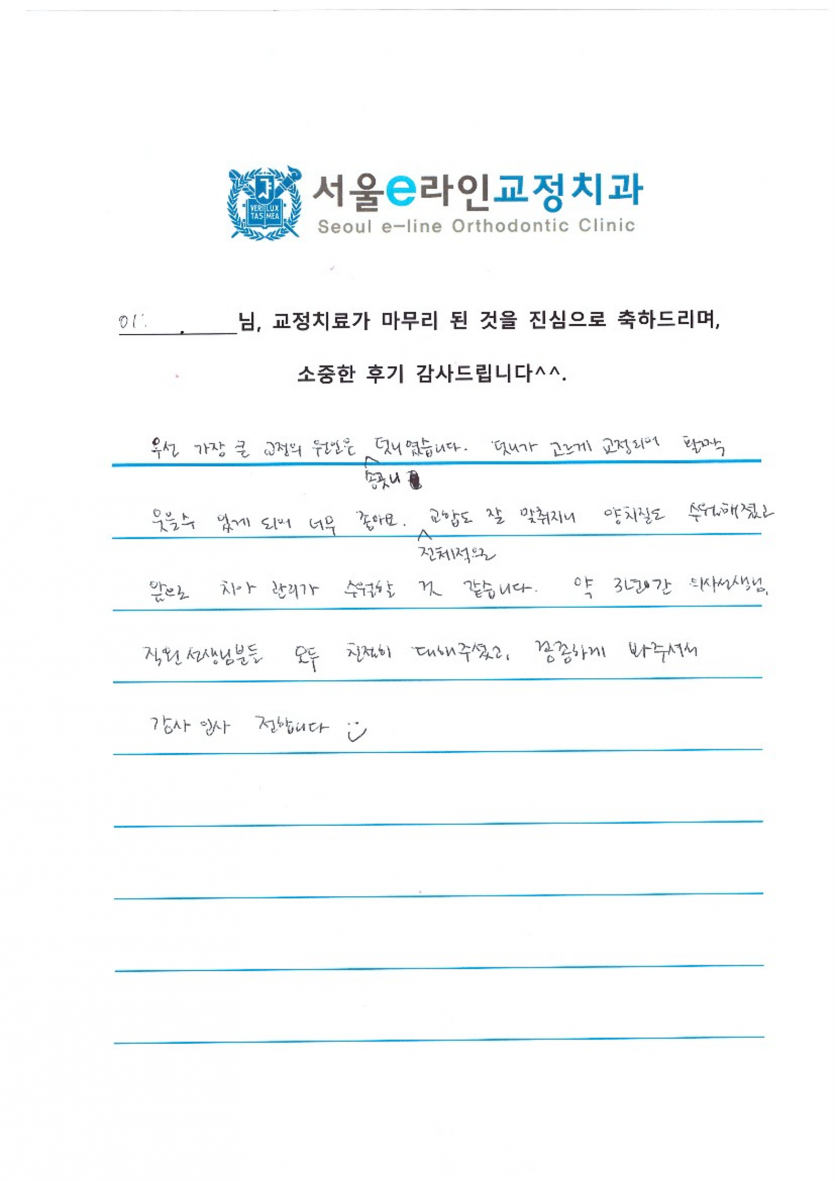 VERI LUX
TAS MEA
서울e라인교정치과
Seoul e-line Orthodontic Clinic
님, 교정치료가 마무리 된 것을 진심으로 축하드리며,
소중한 후기 감사드립니다^^.
우선 가장 큰 교정의 원인은 덧니였습니다. 덧니가 고르게 교정되어 활짝
송곳니
웃을수 있게 되어 너무 좋아요. 교합도 잘 맞춰지니 양치질도 수월해졌고
전체적으로
앞으로 치아 관리가 수월할 것 같습니다. 약 3년여간 의사선생님,
직원선생님분들 모두 친절히 대해주셨고, 꼼꼼하게 봐주셔서
감사 인사 전합니다 :)